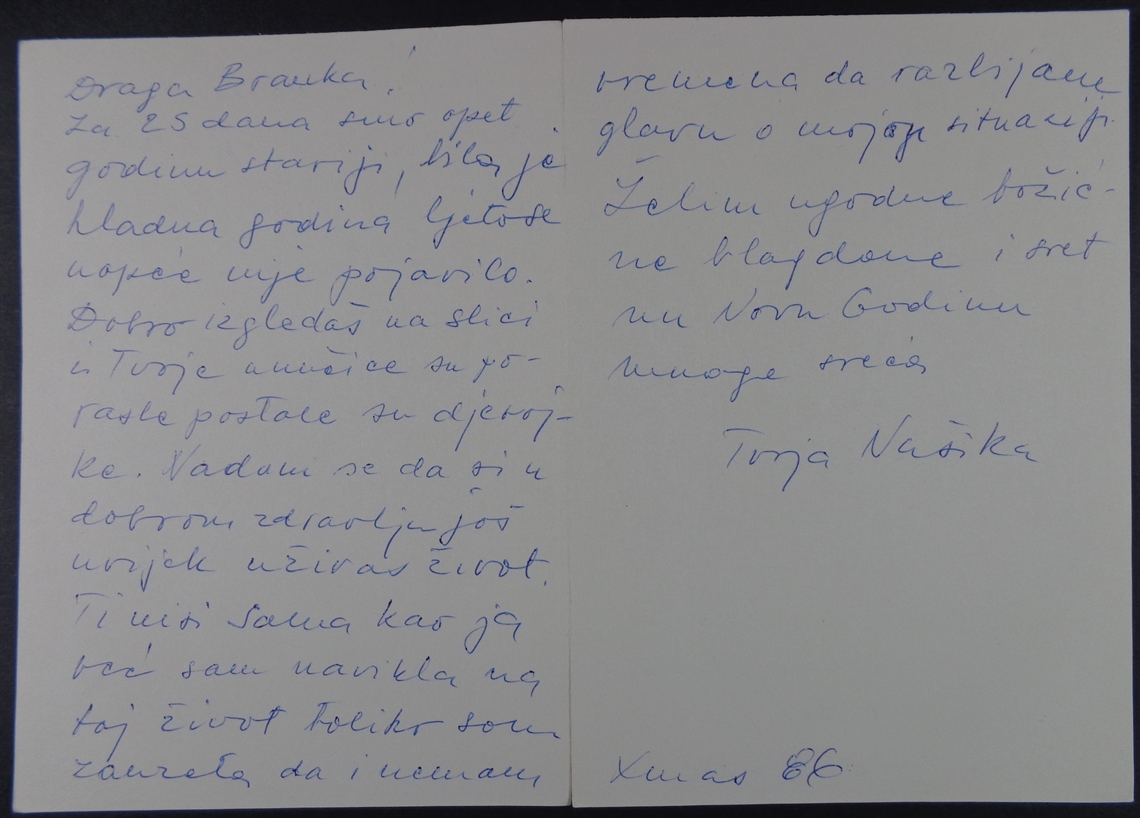 Draga Branka!
Za 25 dana smo opet
godinu stariji, bila je
hladna godina ljeto se
uopće nije pojavilo.
Dobro izgledaš na slici
i Tvoje unučice su po-
rasle postale su djevoj-
ke. Nadam se da si u
dobrom zdravlju još
uvijek uživaš život.
Ti nisi sama kao ja
već sam navikla na
taj život toliko sam
zauzeta da i nemam
vremena da razbijam
glavu o mojoj situaciji.
Želim ugodne božić-
ne blagdane i sret
nu Novu Godinu
mnogo sreća
Tvoja Našika
Xmas 86